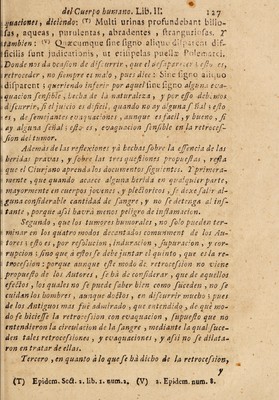 del Cuerpo humano. Lib. II. 127
quaciones, diciendo: (T) Multi urinas profundebant bilio-
sas, aqueas, purulentas, abradentes, stranguriosas. Y
tambien: (V) Quæcumque sine signo aliquo disparent dif-
ficilis sunt judicationis, ut erisipelas puellæ Polemarci.
Donde nos da ocasion de discurrir, que el desaparecer, esto es,
retroceder, no siempre es malo, pues dice: Sine signo aliquo
disparent; queriendo inferir por aquel sine signo alguna eva-
quacion sensible, hecha de la naturaleza, y por esso debemos
discurrir, si el juicio es dificil, quando no ay alguna señal, esto
es, de semejantes evaquaciones, aunque es facil, y bueno, si
ay alguna señal, esto es, evaquacion sensible en la retroces-
sion del tumor.
Además de las reflexiones yà hechas sobre la essencia de las
heridas pravas, y sobre las tres questiones propuestas, resta
que el Cirurjano aprenda los documentos siguientes. Y primera-
mente, que quando acaece alguna herida en qualquier parte,
mayormente en cuerpos jovenes, y plethoricos, se dexe salir al-
guna considerable cantidad de sangre, y no se detenga al ins-
tante, porque assi havrà menos peligro de inflamacion.
Segundo, que los tumores humorales, no solo pueden ter-
minar en los quatro modos decantados comunment de los Au-
tores, esto es, por resolucion, induracion, supuracion, y cor-
rupcion, sino que à estos se debe juntar el quinto, que es la re-
trocession: porque aunque este modo de retrocession no viene
propuesto de los Autores, se hà de considerar, que de aquellos
efectos, los quales no se puede saber bien como suceden, no se
cuidan los hombres, aunque doctos, en discurrir mucho; pues
de los Antiguos mas fuè admirado, que entendido, de què mo-
do se hiciesse la retrocession con evaquacion, supuesto que no
entendieron la circulacion de la sangre, mediante la qual suce-
den tales retrocessiones, y evaquaciones, y assi no se dilata-
ron en tratar de ellas.
Tercero, en quanto à lo que se hà dicho de la retrocession,
y
(T) Epidem. Sect. 2. lib. 1. num. 2. (V) 2. Epidem. num. 8.